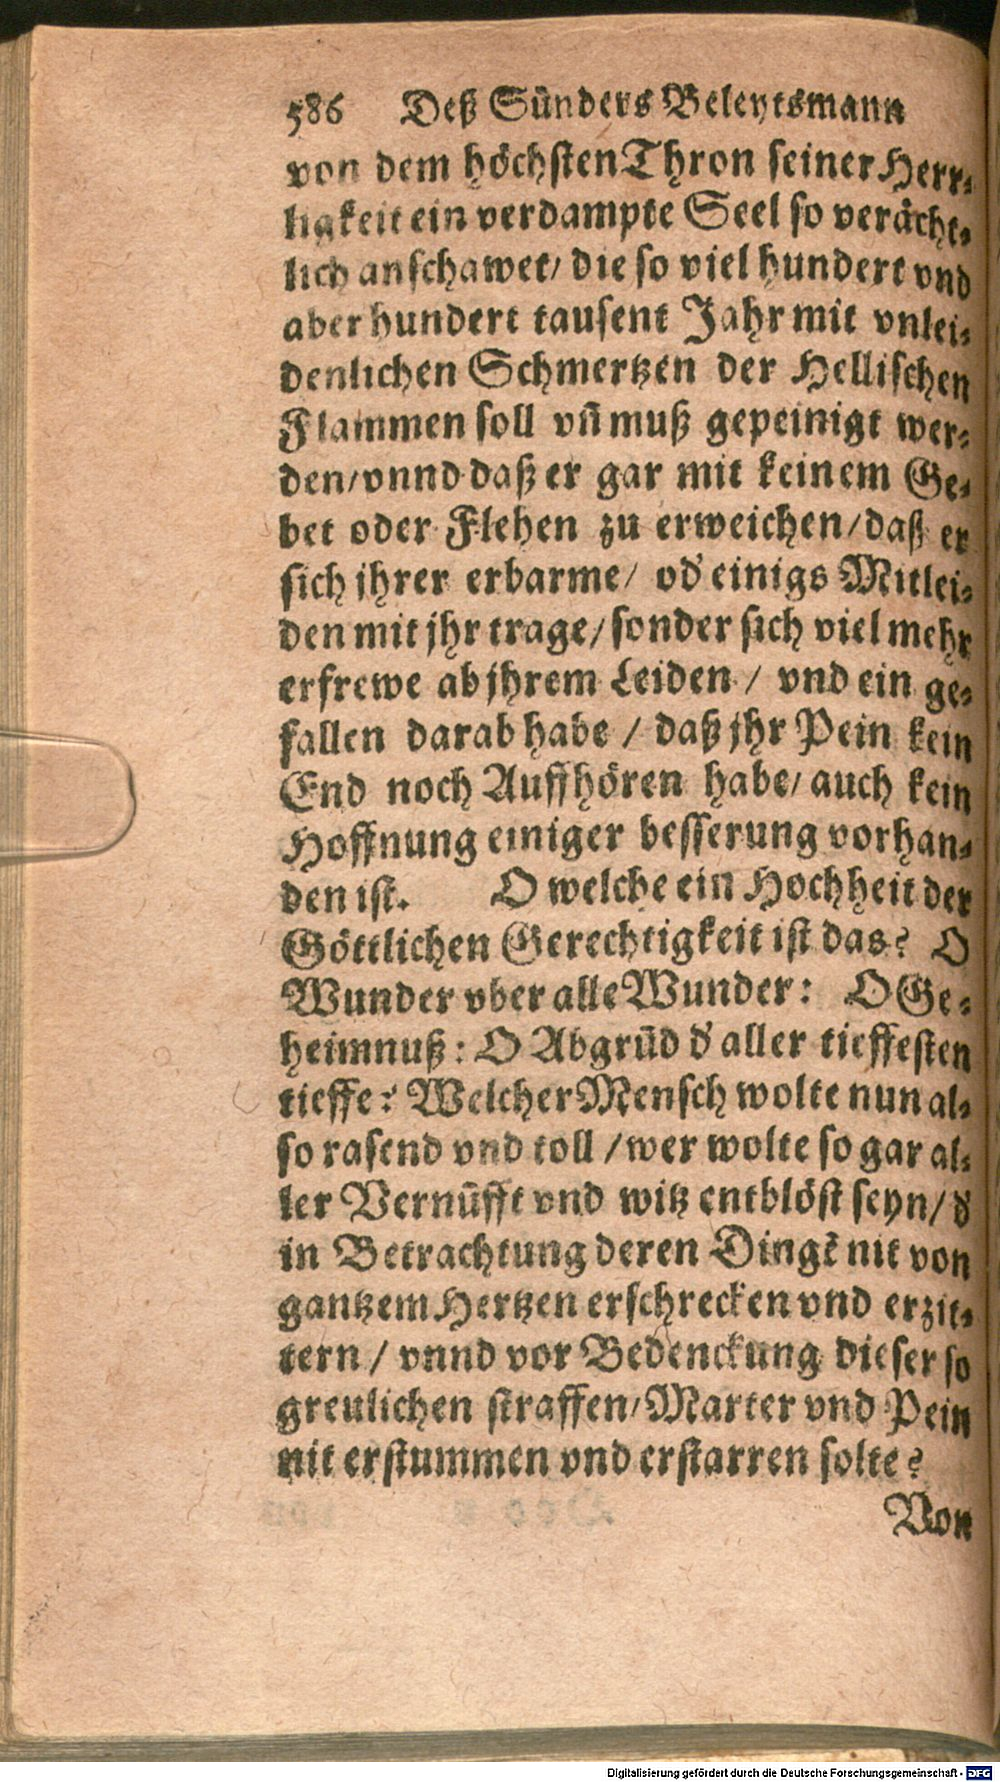 586 Deß Sünders Beleytsmann
von dem höchsten Thron seiner Herr-
ligkeit ein verdampte Seel so verächt-
lich anschawet/ die so viel hundert vnd
aber hundert tausent Jahr mit vnlei-
denlichen Schmertzen der Hellischen
Flammen soll vñ muß gepeinigt wer-
den/ vnnd daß er gar mit keinem Ge-
bet oder Flehen zu erweichen/ daß er
sich jhrer erbarme/ od' einigs Mitlei-
den mit jhr trage/ sonder sich viel mehr
erfrewe ab jhrem Leiden / vnd ein ge-
fallen darab habe / daß jhr Pein kein
End noch Auffhören habe/ auch kein
Hoffnung einiger besserung vorhan-
den ist. O welche ein Hochheit der
Göttlichen Gerechtigkeit ist das? O
Wunder vber alle Wunder: O Ge-
heimnuß: O Abgrūd d' aller tieffesten
tieffe: Welcher Mensch wolte nun al-
so rasend vnd toll / wer wolte so gar al-
ler Vernūfft vnd witz entblöst seyn/ d'
in Betrachtung deren Dingē nit von
gantzem Hertzen erschrecken vnd erzit-
tern / vnnd vor Bedenckung dieser so
greulichen straffen/ Marter vnd Pein
nit erstummen vnd erstarren solte?
Von
Digitalisierung gefördert durch die Deutsche Forschungsgemeinschaft - DFG